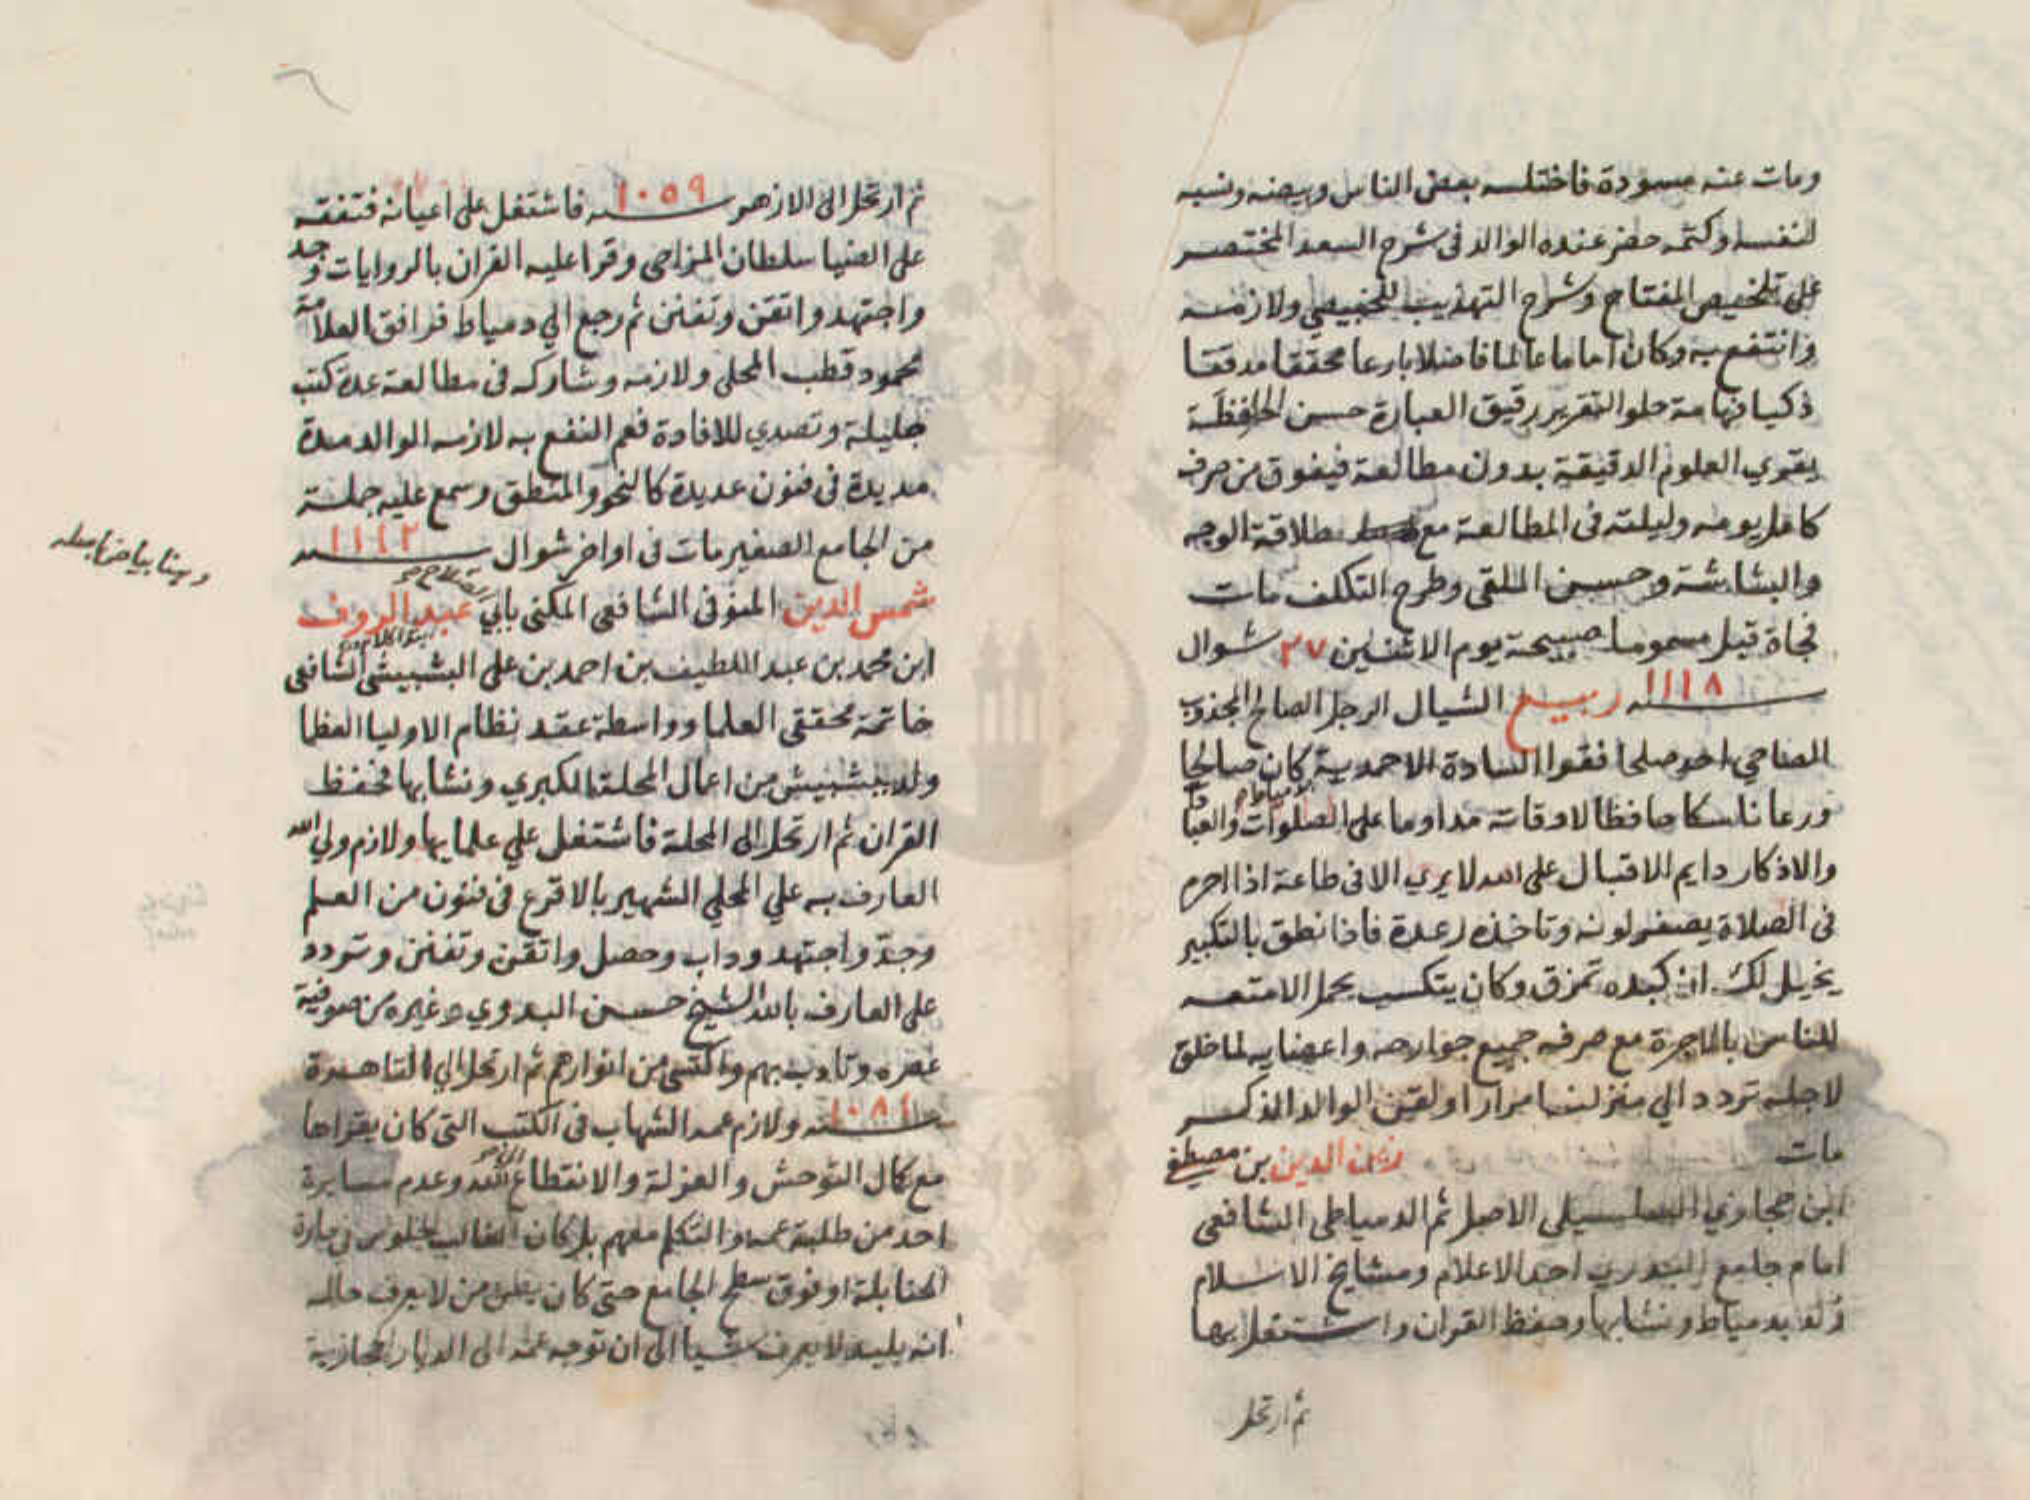 ومات عنه مسودة فاختلسه بعض الناس وبيضه ونسبه
لنفسه وكتمه حضر عنده الوالد فى شرح السعد المختصر
على تلخيص المفتاح وشرح التهذيب للخبيصي ولازمه
وانتفع به وكان اماما عالما فاضلا بارعا محققا مدققا
ذكيا فهامة حلو التقرير رقيق العبارة حسن الحافظة
يقري العلوم الدقيقية بدون مطالعة فيفوق من صرف
كامل يومه وليلته فى المطالعة مع طلاقة الوجه
والبشاشة وحسن الملقى وطرح التكلف مات
فجاة قيل مسموما صبيحة يوم الاثنين ٢٧ شوال
سنه ١١١٨ ربيع الشيال الرجل الصالح المجذوب
الصاحي احد صلحا فقرا السادة الاحمدية كان صالحا
ورعا ناسكا حافظا لاوقاته مداوما على الصلوات والعبا
والاذكار دايم الاقبال على الله لا يري الا فى طاعة اذا احرم
فى الصلاة يصفر لونه وتاخذه رعدة فاذا نطق بالتكبير
يخيل لك ان كبده تمزق وكان يتكسب بحمل الامتعه
للناس بالاجرة مع صرف جميع جوارحه واعضايه لما خلق
لاجله تردد الي منزلنا مرارا ولقين الوالد الذكر
مات زين الدين بن مصطفى
ابن حجازي السلسيلي الاصل ثم الدمياطى الشافعى
امام جامع البدري احد الاعلام ومشايخ الاسلام
ولد بدمياط ونشا بها وحفظ القران واشتغل بها
ثم ارتحل
ثم ارتحل الى الازهر سنه ١٠٥٩ فاشتغل على اعيانه فتفقه
على الضيا سلطان المزاحى وقرا عليه القران بالروايات وجد
واجتهد واتقن وتفنن ثم رجع الي دمياط فرافق العلامة
محمود قطب المحلى ولازمه وشاركه فى مطالعة عدة كتب
جليلة وتصدي للافادة فعم النفع به لازمه الوالد مدة
مديدة فى فنون عديدة كالنحو والمنطق وسمع عليه جملة
من الجامع الصغير مات فى اواخر شوال سنه ١١١٢
شمس الدين المنوفى الشافعى المكنى بابي عبد الروف
ابن محمد بن عبد اللطيف بن احمد بن على البشبيشى الشافعى
خاتمة محققى العلما وواسطة عقد نظام الاوليا العظما
ولد ببشبيش من اعمال المحلة الكبري ونشا بها فحفظ
القران ثم ارتحل الى المحلة فاشتغل علي علمايها ولازم ولي الله
العارف به علي المحلي الشهير بالاقرع فى فنون من العلم
وجد واجتهد وداب وحصل واتقن وتفنن وتردد
على العارف بالله الشيخ حسن البدوي وغيره من صوفية
عصره وتادب بهم واكتسى من انوارهم ثم ارتحل الي القاهرة
سنه ١٠٨١ ولازم عمه الشهاب فى الكتب التى كان يقراها
مع كمال التوحش والعزلة والانقطاع لله وعدم مسايرة
احد من طلبة عمه والتكلم معهم بل كان الغالب جلوس فى حارة
الحنابلة او فوق سطح الجامع حتى كان يظن من لا يعرف حاله
انه بليد لا يعرف شيا الى ان توجه عمه الى الديار الحجازية